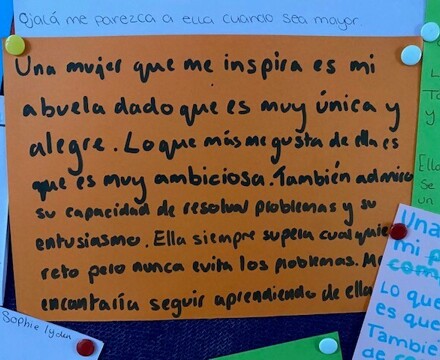 Ojalá me parezca a ella cuando sea mayor.
Una mujer que me inspira es mi
abuela dado que es muy única y
alegre. Lo que más me gusta de ella es
que es muy ambiciosa. También admiro
su capacidad de resolval problemas y su
entusiasmo. Ella siempre supera cualquier
reto pero nunca evita los problemas. Me
encantaría seguir aprendiendo de ella
Sophie Lyden
L
To
y
Ella
se
un
Una
mi p
com
Lo que
es que
Tambie
de re